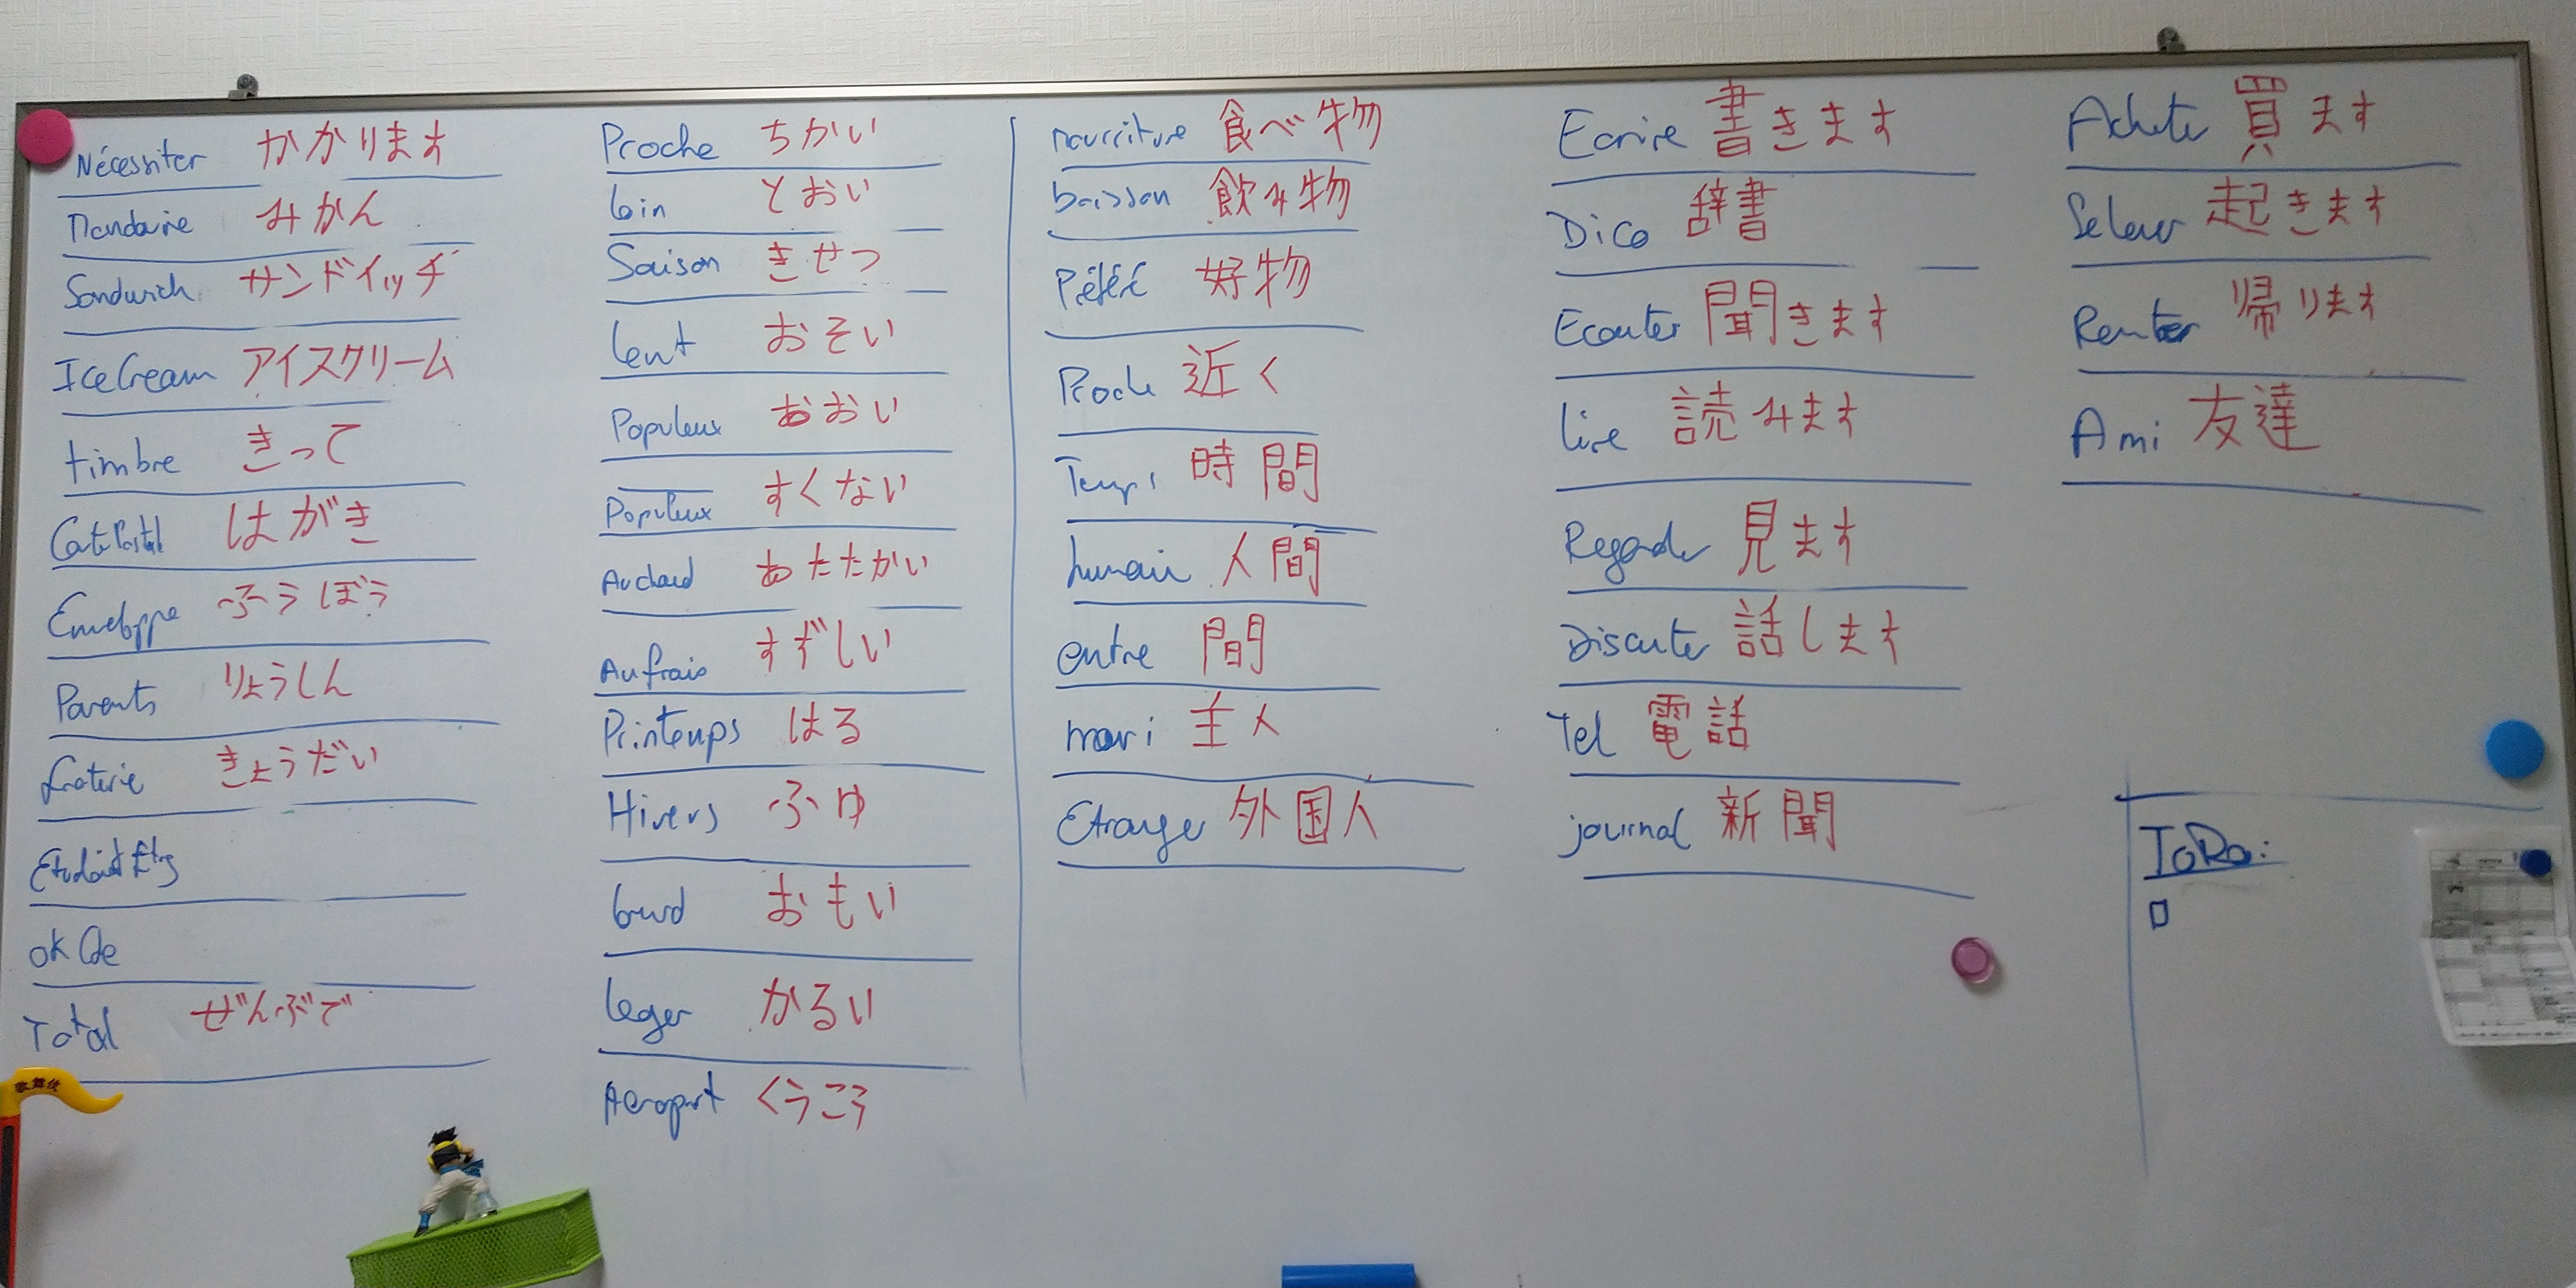 Nécessiter かかります
Mandarine みかん
Sandwich サンドイッチ
IceCream アイスクリーム
timbre きって
はがき
Enveloppe ふうぼう
Parents りょうしん
きょうだい
Total ぜんぶで
Proche ちかい
loin とおい
Saison きせつ
lent おそい
Populeux おおい
Populeux すくない
Au chaud あたたかい
Au frais すずしい
Printemps はる
Hivers ふゆ
lourd おもい
leger かるい
Aeroport くうこう
nourriture 食べ物
boisson 飲み物
Préféré 好物
Proche 近く
Temps 時間
humain 人間
entre 間
mari 主人
Etranger 外国人
Ecrire 書きます
Dico 辞書
Ecouter 聞きます
lire 読みます
Regarder 見ます
Discuter 話します
Tel 電話
journal 新聞
Acheter 買ます
Se lever 起きます
Rentrer 帰ります
Ami 友達
ToDo:
歌舞伎